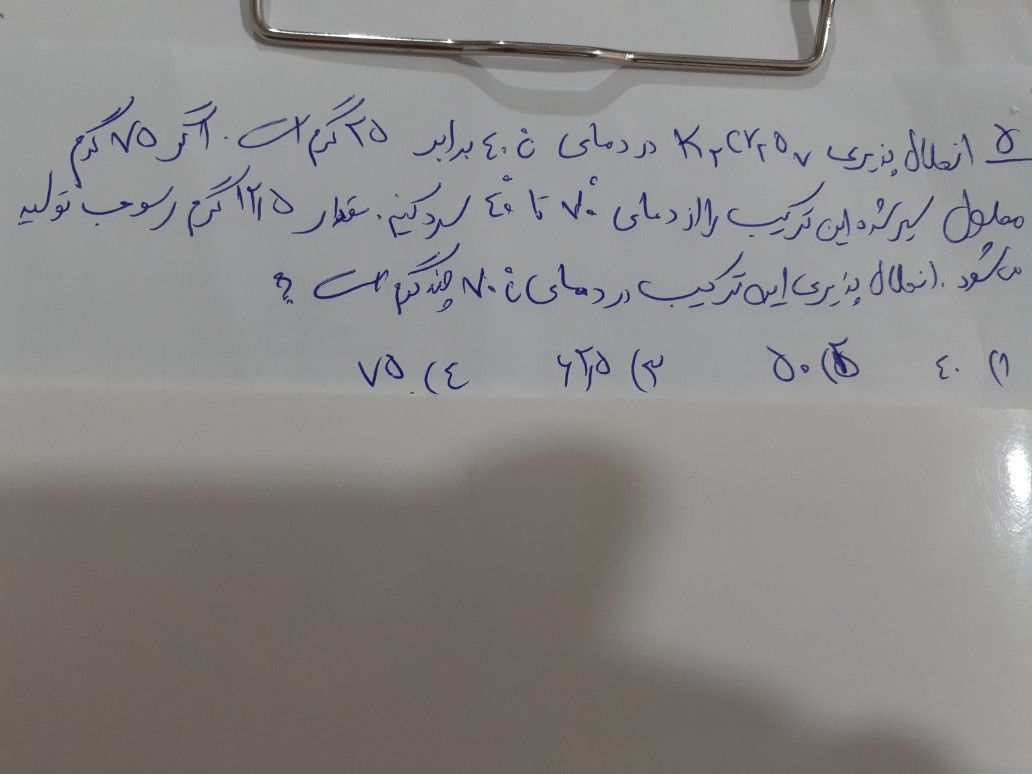 ۵ انحلال پذیری K₂Cr₂O₇ در دمای ۴۰°C برابر ۲۵ گرم است. اگر ۷۵ گرم
محلول سیر شده این ترکیب را از دمای ۷۰° تا ۴۰° سرد کنیم. مقدار ۱۲٫۵ گرم رسوب تولید
می شود. انحلال پذیری این ترکیب در دمای ۷۰°C چند گرم است ؟
۱) ۴۰ ۲) ۵۰ ۳) ۶۲٫۵ ۴) ۷۵